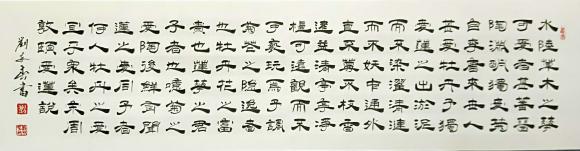 水陸草木之華
可愛者甚蕃晉
陶淵明獨愛菊
自李唐來世人
甚愛牡丹予獨
愛蓮之出淤泥
而不染濯清漣
而不妖中通外
直不蔓不枝香
遠益清亭亭淨
植可遠觀而不
可褻玩焉予謂
菊花之隱逸者
也牡丹花之富
貴也蓮華之君
子者也噫菊之
愛陶後鮮有聞
蓮之愛同予者
何人牡丹之愛
宜乎眾矣夫周
敦頤愛蓮說
劉書